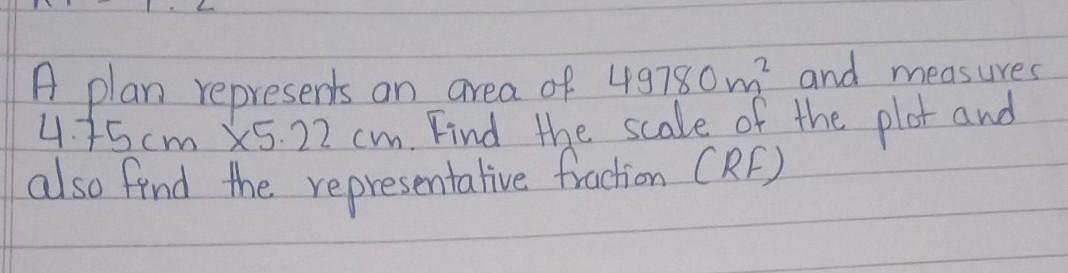 A plan represents an area of 49780m² and measures
4.75cm x5.22 cm. Find the scale of the plot and
also find the representative fraction (RF)